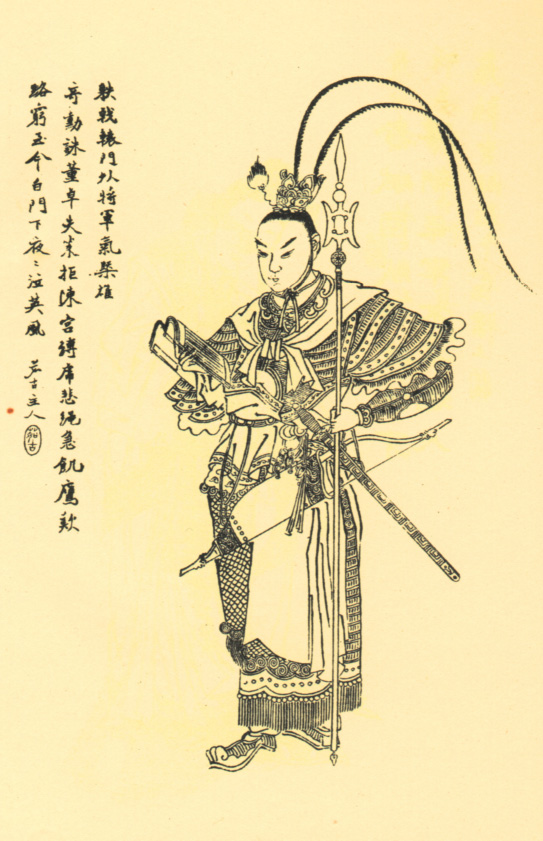 䠶戟轅門外將軍氣槩雄
奇勳誅董卓失策拒陳宮縛虎悲繩急飢鷹歎
路窮至今白門下夜〻泣英風
古主人